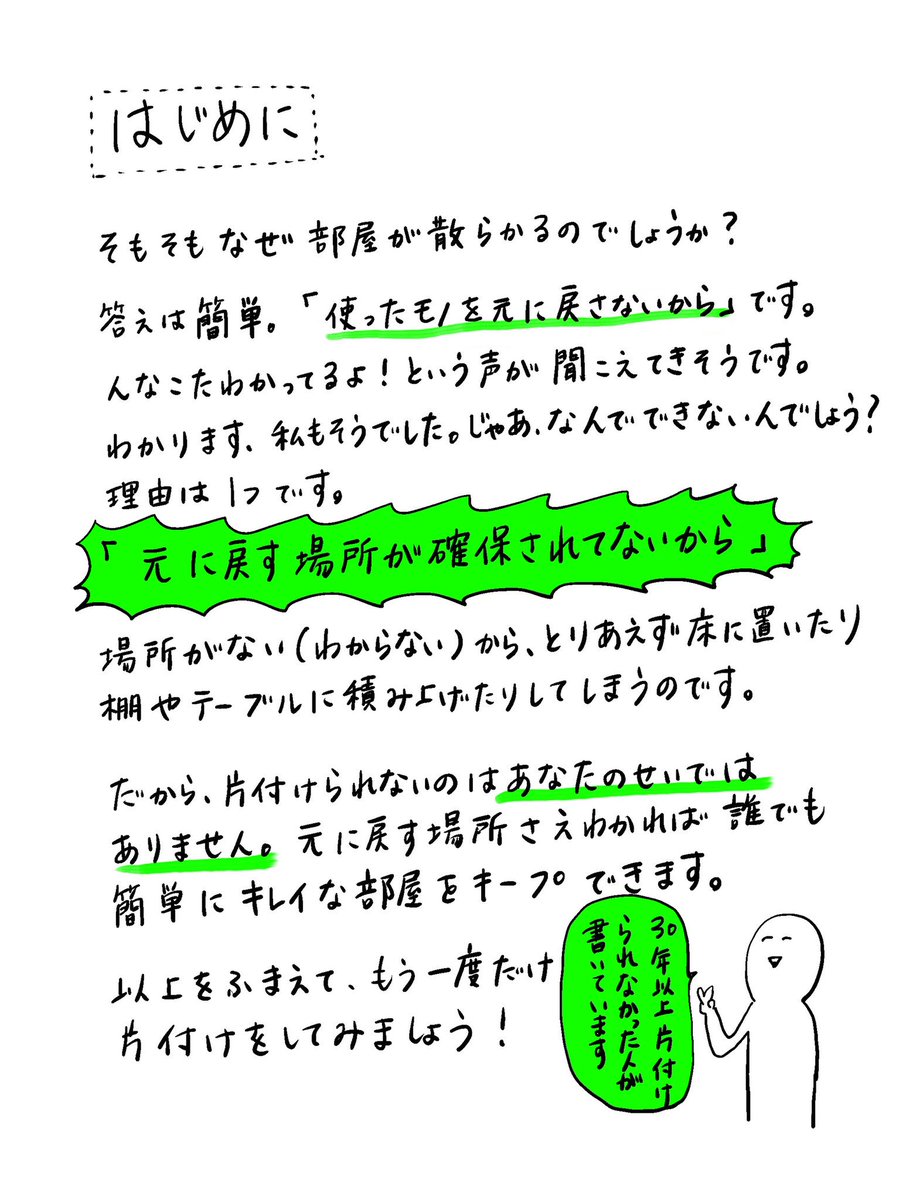 はじめに
そもそもなぜ部屋が散らかるのでしょうか？
答えは簡単。「使ったモノを元に戻さないから」です。
んなこたわかってるよ！という声が聞こえてきそうです。
わかります、私もそうでした。じゃあ、なんでできないんでしょう？
理由は1つです。
「元に戻す場所が確保されてないから」
場所がない（わからない）から、とりあえず床に置いたり
棚やテーブルに積み上げたりしてしまうのです。
だから、片付けられないのはあなたのせいでは
ありません。元に戻す場所さえわかれば誰でも
簡単にキレイな部屋をキープできます。
以上をふまえて、もう一度だけ
片付けをしてみましょう！
30年以上片付け
られなかった人が
書いています